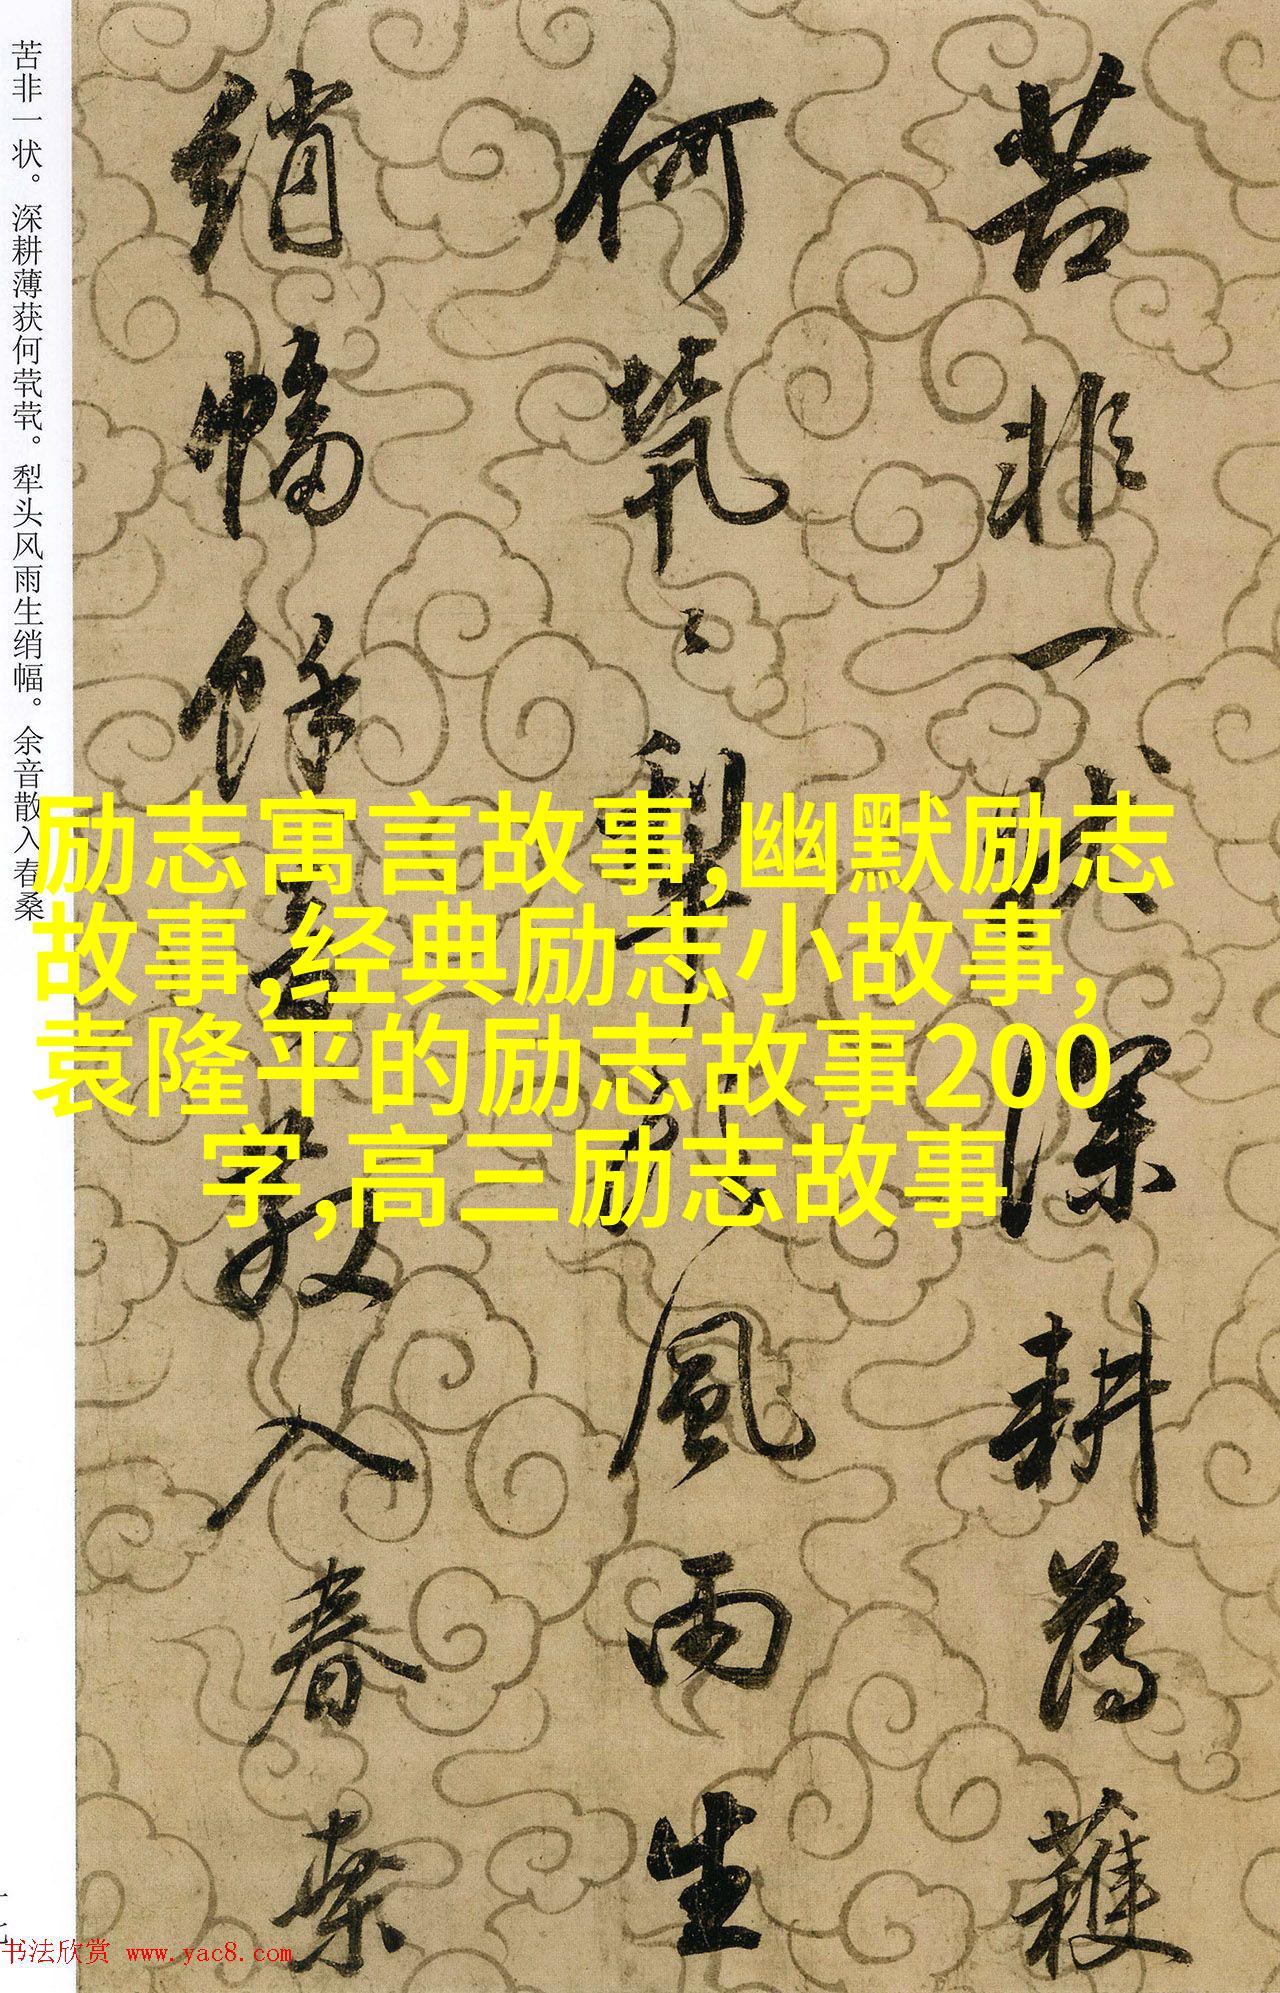 苦非一状。深耕薄获何茕茕。犁头风雨生绡幅。余音散入春桑
苦非一状深耕薄穫
何茕〻犁頭風雨生
绡幅馀音散入春桑
励志寓言故事,幽默励志
故事,经典励志小故事,
袁隆平的励志故事200
字,高三励志故事
十七
书法欣赏 www.yac8.com